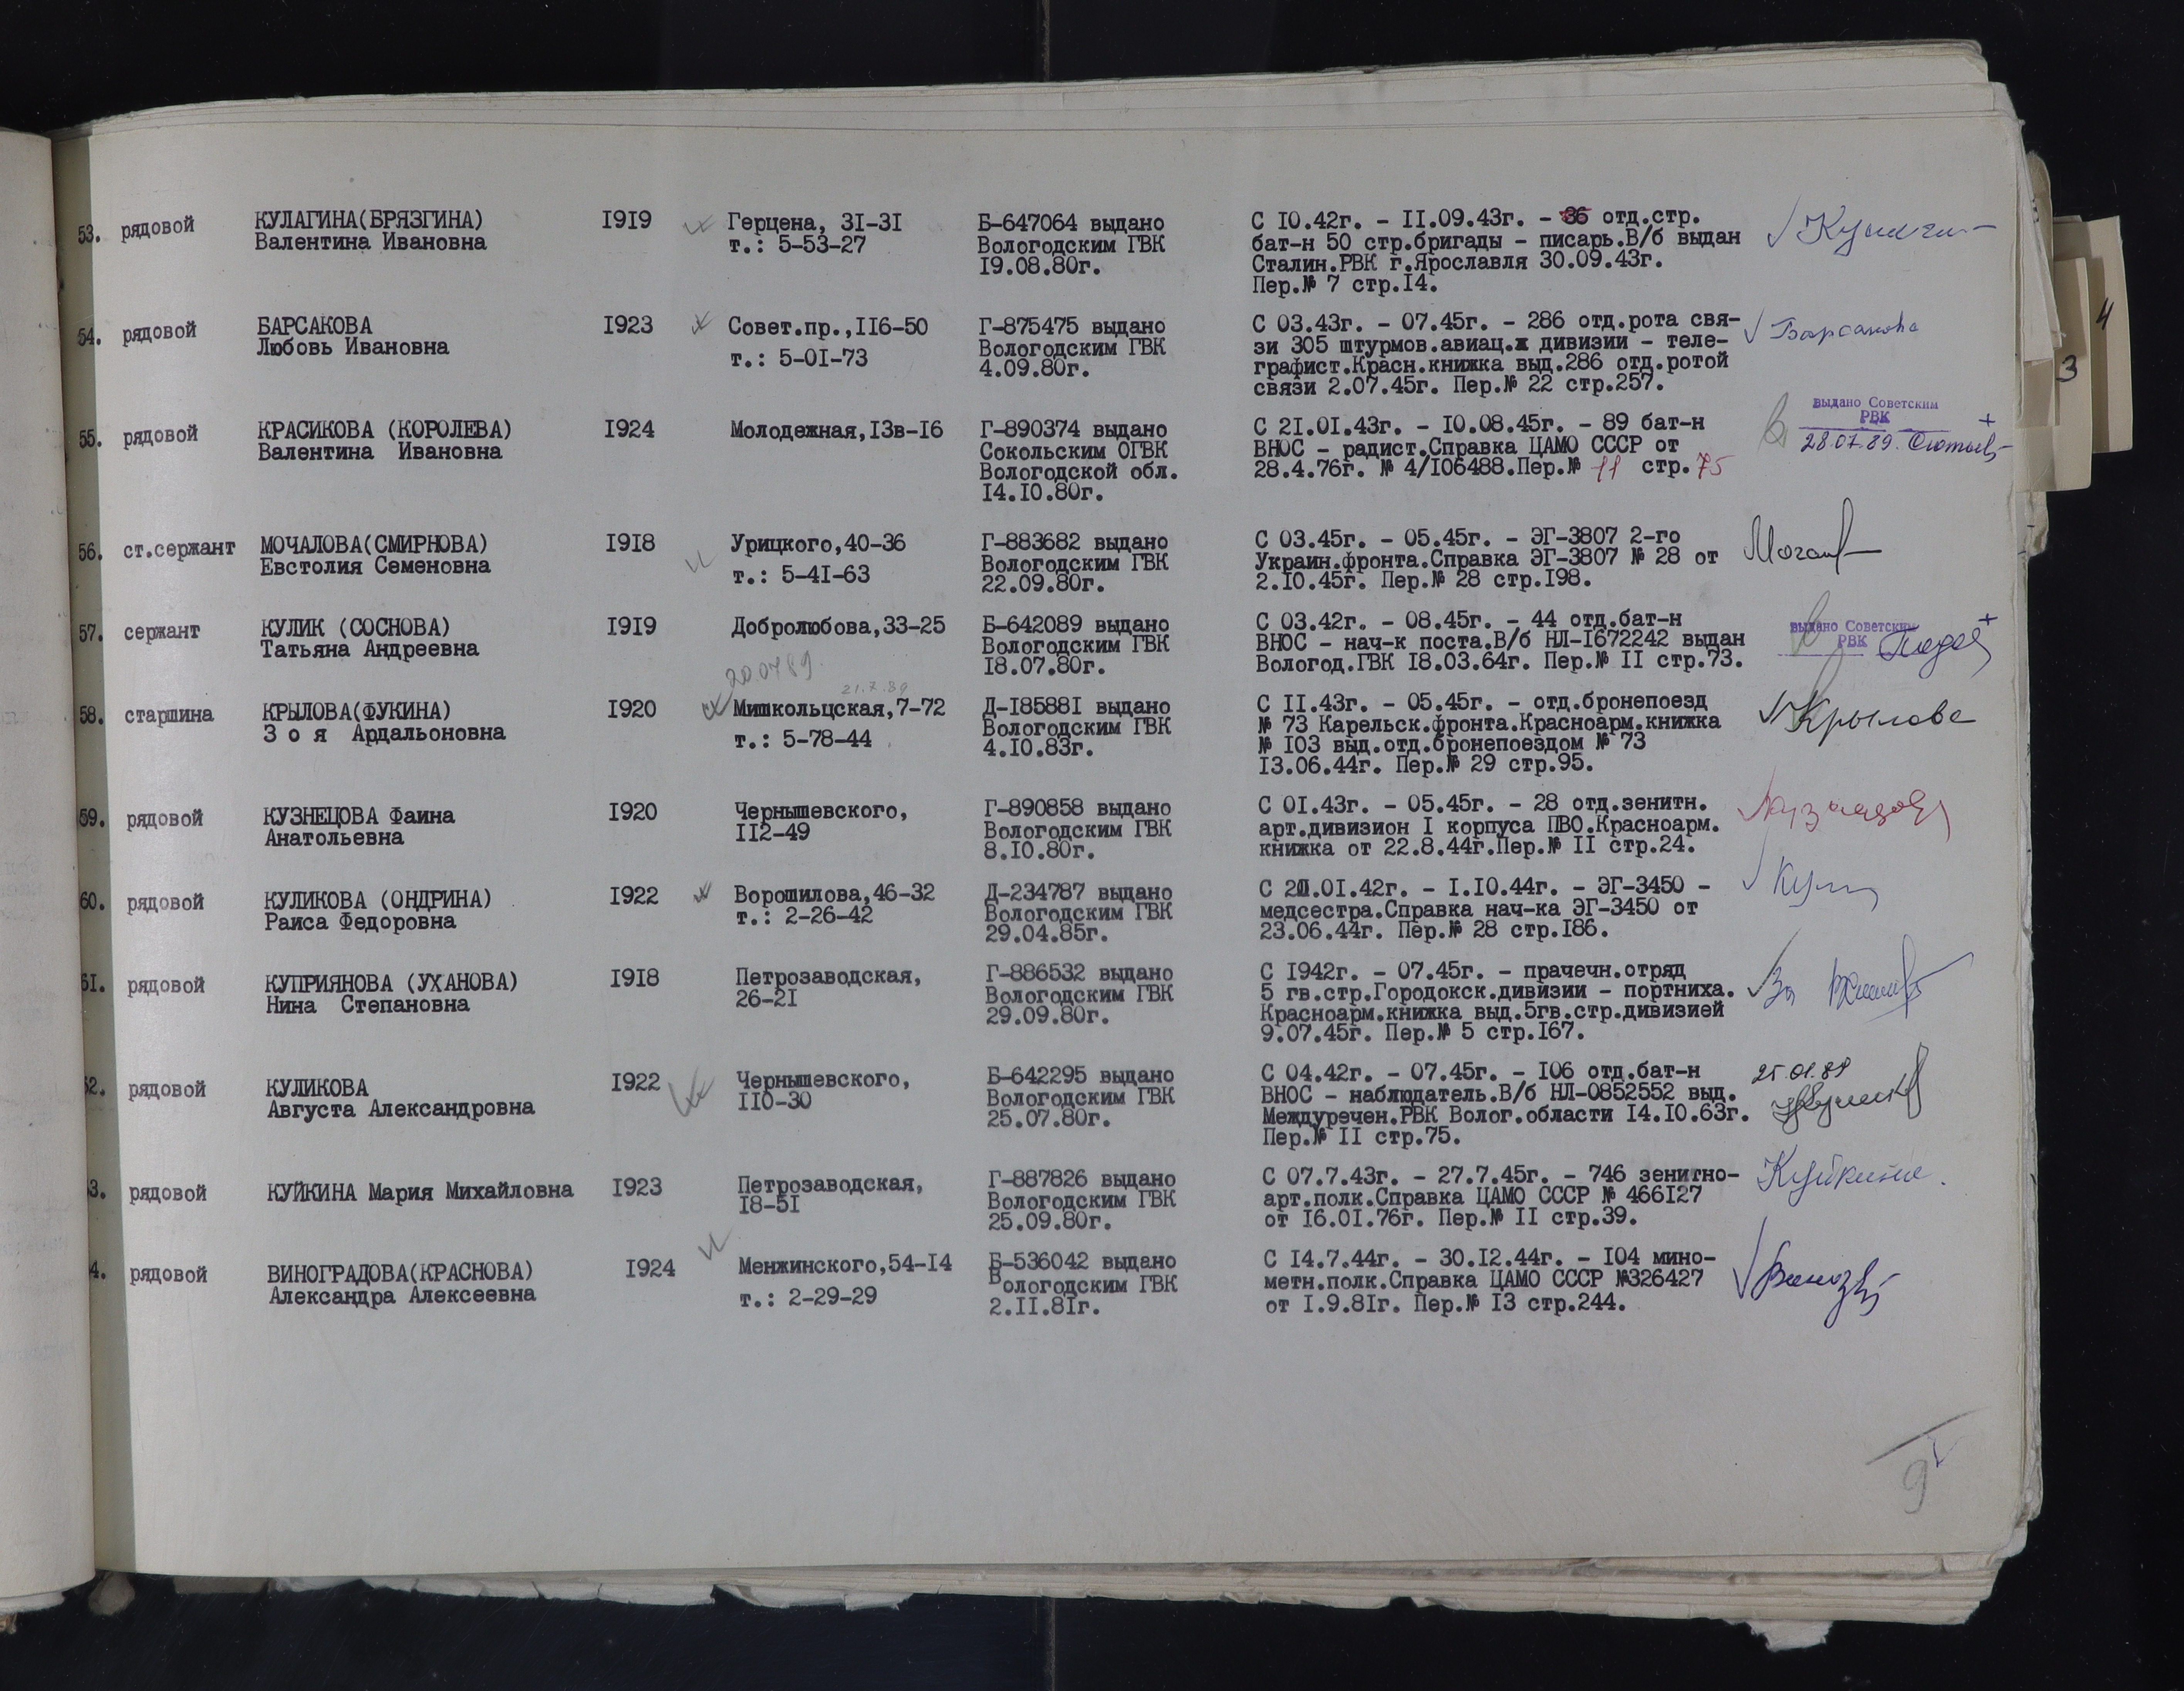 53. рядовой КУЛАГИНА(БРЯЗГИНА) 1919 Герцена, 31-31 Б-647064 выдано С 10.42г. - 11.09.43г. - 36 отд.стр.
Валентина Ивановна т.: 5-53-27 Вологодским ГВК бат-н 50 стр.бригады - писарь.В/б выдан
19.08.80г. Сталин.РВК г.Ярославля 30.09.43г.
Пер.№ 7 стр.14.
54. рядовой БАРСАКОВА 1923 Совет.пр.,116-50 Г-875475 выдано С 03.43г. - 07.45г. - 286 отд.рота свя- Барсакова
Любовь Ивановна т.: 5-01-73 Вологодским ГВК зи 305 штурмов.авиац.ж дивизии - теле-
4.09.80г. графист.Красн.книжка выд.286 отд.ротой
связи 2.07.45г. Пер.№ 22 стр.257.
55. рядовой КРАСИКОВА (КОРОЛЕВА) 1924 Молодежная,13в-16 Г-890374 выдано С 21.01.43г. - 10.08.45г. - 89 бат-н выдано Советским
Валентина Ивановна Сокольским ОГВК ВНОС - радист.Справка ЦАМО СССР от РВК
Вологодской обл. 28.4.76г. № 4/106488.Пер.№ 11 стр.75 28.07.89.
14.10.80г.
56. ст.сержант МОЧАЛОВА(СМИРНОВА) 1918 Урицкого,40-36 Г-883682 выдано С 03.45г. - 05.45г. - ЭГ-3807 2-го
Евстолия Семеновна т.: 5-41-63 Вологодским ГВК Украин.фронта.Справка ЭГ-3807 № 28 от
22.09.80г. 2.10.45г. Пер.№ 28 стр.198.
57. сержант КУЛИК (СОСНОВА) 1919 Добролюбова,33-25 Б-642089 выдано С 03.42г. - 08.45г. - 44 отд.бат-н выдано Советским
Татьяна Андреевна Вологодским ГВК ВНОС - нач-к поста.В/б НЛ-1672242 выдан РВК
20.07 89. 18.07.80г. Вологод.ГВК 18.03.64г. Пер.№ 11 стр.73.
21.7.89
58. старшина КРЫЛОВА(ФУКИНА) 1920 Мишкольцская,7-72 Д-185881 выдано С 11.43г. - 05.45г. - отд.бронепоезд Крылова
З о я Ардальоновна т.: 5-78-44 Вологодским ГВК № 73 Карельск.фронта.Красноарм.книжка
4.10.83г. № 103 выд.отд.бронепоездом № 73
13.06.44г. Пер.№ 29 стр.95.
59. рядовой КУЗНЕЦОВА Фаина 1920 Чернышевского, Г-890858 выдано С 01.43г. - 05.45г. - 28 отд.зенитн.
Анатольевна 112-49 Вологодским ГВК арт.дивизион 1 корпуса ПВО.Красноарм.
8.10.80г. книжка от 22.8.44г.Пер.№ 11 стр.24.
60. рядовой КУЛИКОВА (ОНДРИНА) 1922 Ворошилова,46-32 Д-234787 выдано С .01.42г. - 1.10.44г. - ЭГ-3450 -
Раиса Федоровна т.: 2-26-42 Вологодским ГВК медсестра.Справка нач-ка ЭГ-3450 от
29.04.85г. 23.06.44г. Пер.№ 28 стр.186.
61. рядовой КУПРИЯНОВА (УХАНОВА) 1918 Петрозаводская, Г-886532 выдано С 1942г. - 07.45г. - прачечн.отряд
Нина Степановна 26-21 Вологодским ГВК 5 гв.стр.Городокск.дивизии - портниха.
29.09.80г. Красноарм.книжка выд.5гв.стр.дивизией
9.07.45г. Пер.№ 5 стр.167.
62. рядовой КУЛИКОВА 1922 Чернышевского, Б-642295 выдано С 04.42г. - 07.45г. - 106 отд.бат-н
Августа Александровна 110-30 Вологодским ГВК ВНОС - наблюдатель.В/б НЛ-0852552 выд.
25.07.80г. Междуречен.РВК Волог.области 14.10.63г.
Пер.№ 11 стр.75.
3. рядовой КУЙКИНА Мария Михайловна 1923 Петрозаводская, Г-887826 выдано С 07.7.43г. - 27.7.45г. - 746 зенитно- Куйкина.
18-51 Вологодским ГВК арт.полк.Справка ЦАМО СССР № 466127
25.09.80г. от 16.01.76г. Пер.№ 11 стр.39.
4. рядовой ВИНОГРАДОВА(КРАСНОВА) 1924 Менжинского,54-14 Б-536042 выдано С 14.7.44г. - 30.12.44г. - 104 мино-
Александра Алексеевна т.: 2-29-29 Вологодским ГВК метн.полк.Справка ЦАМО СССР №326427
2.11.81г. от 1.9.81г. Пер.№ 13 стр.244.
9
4
3